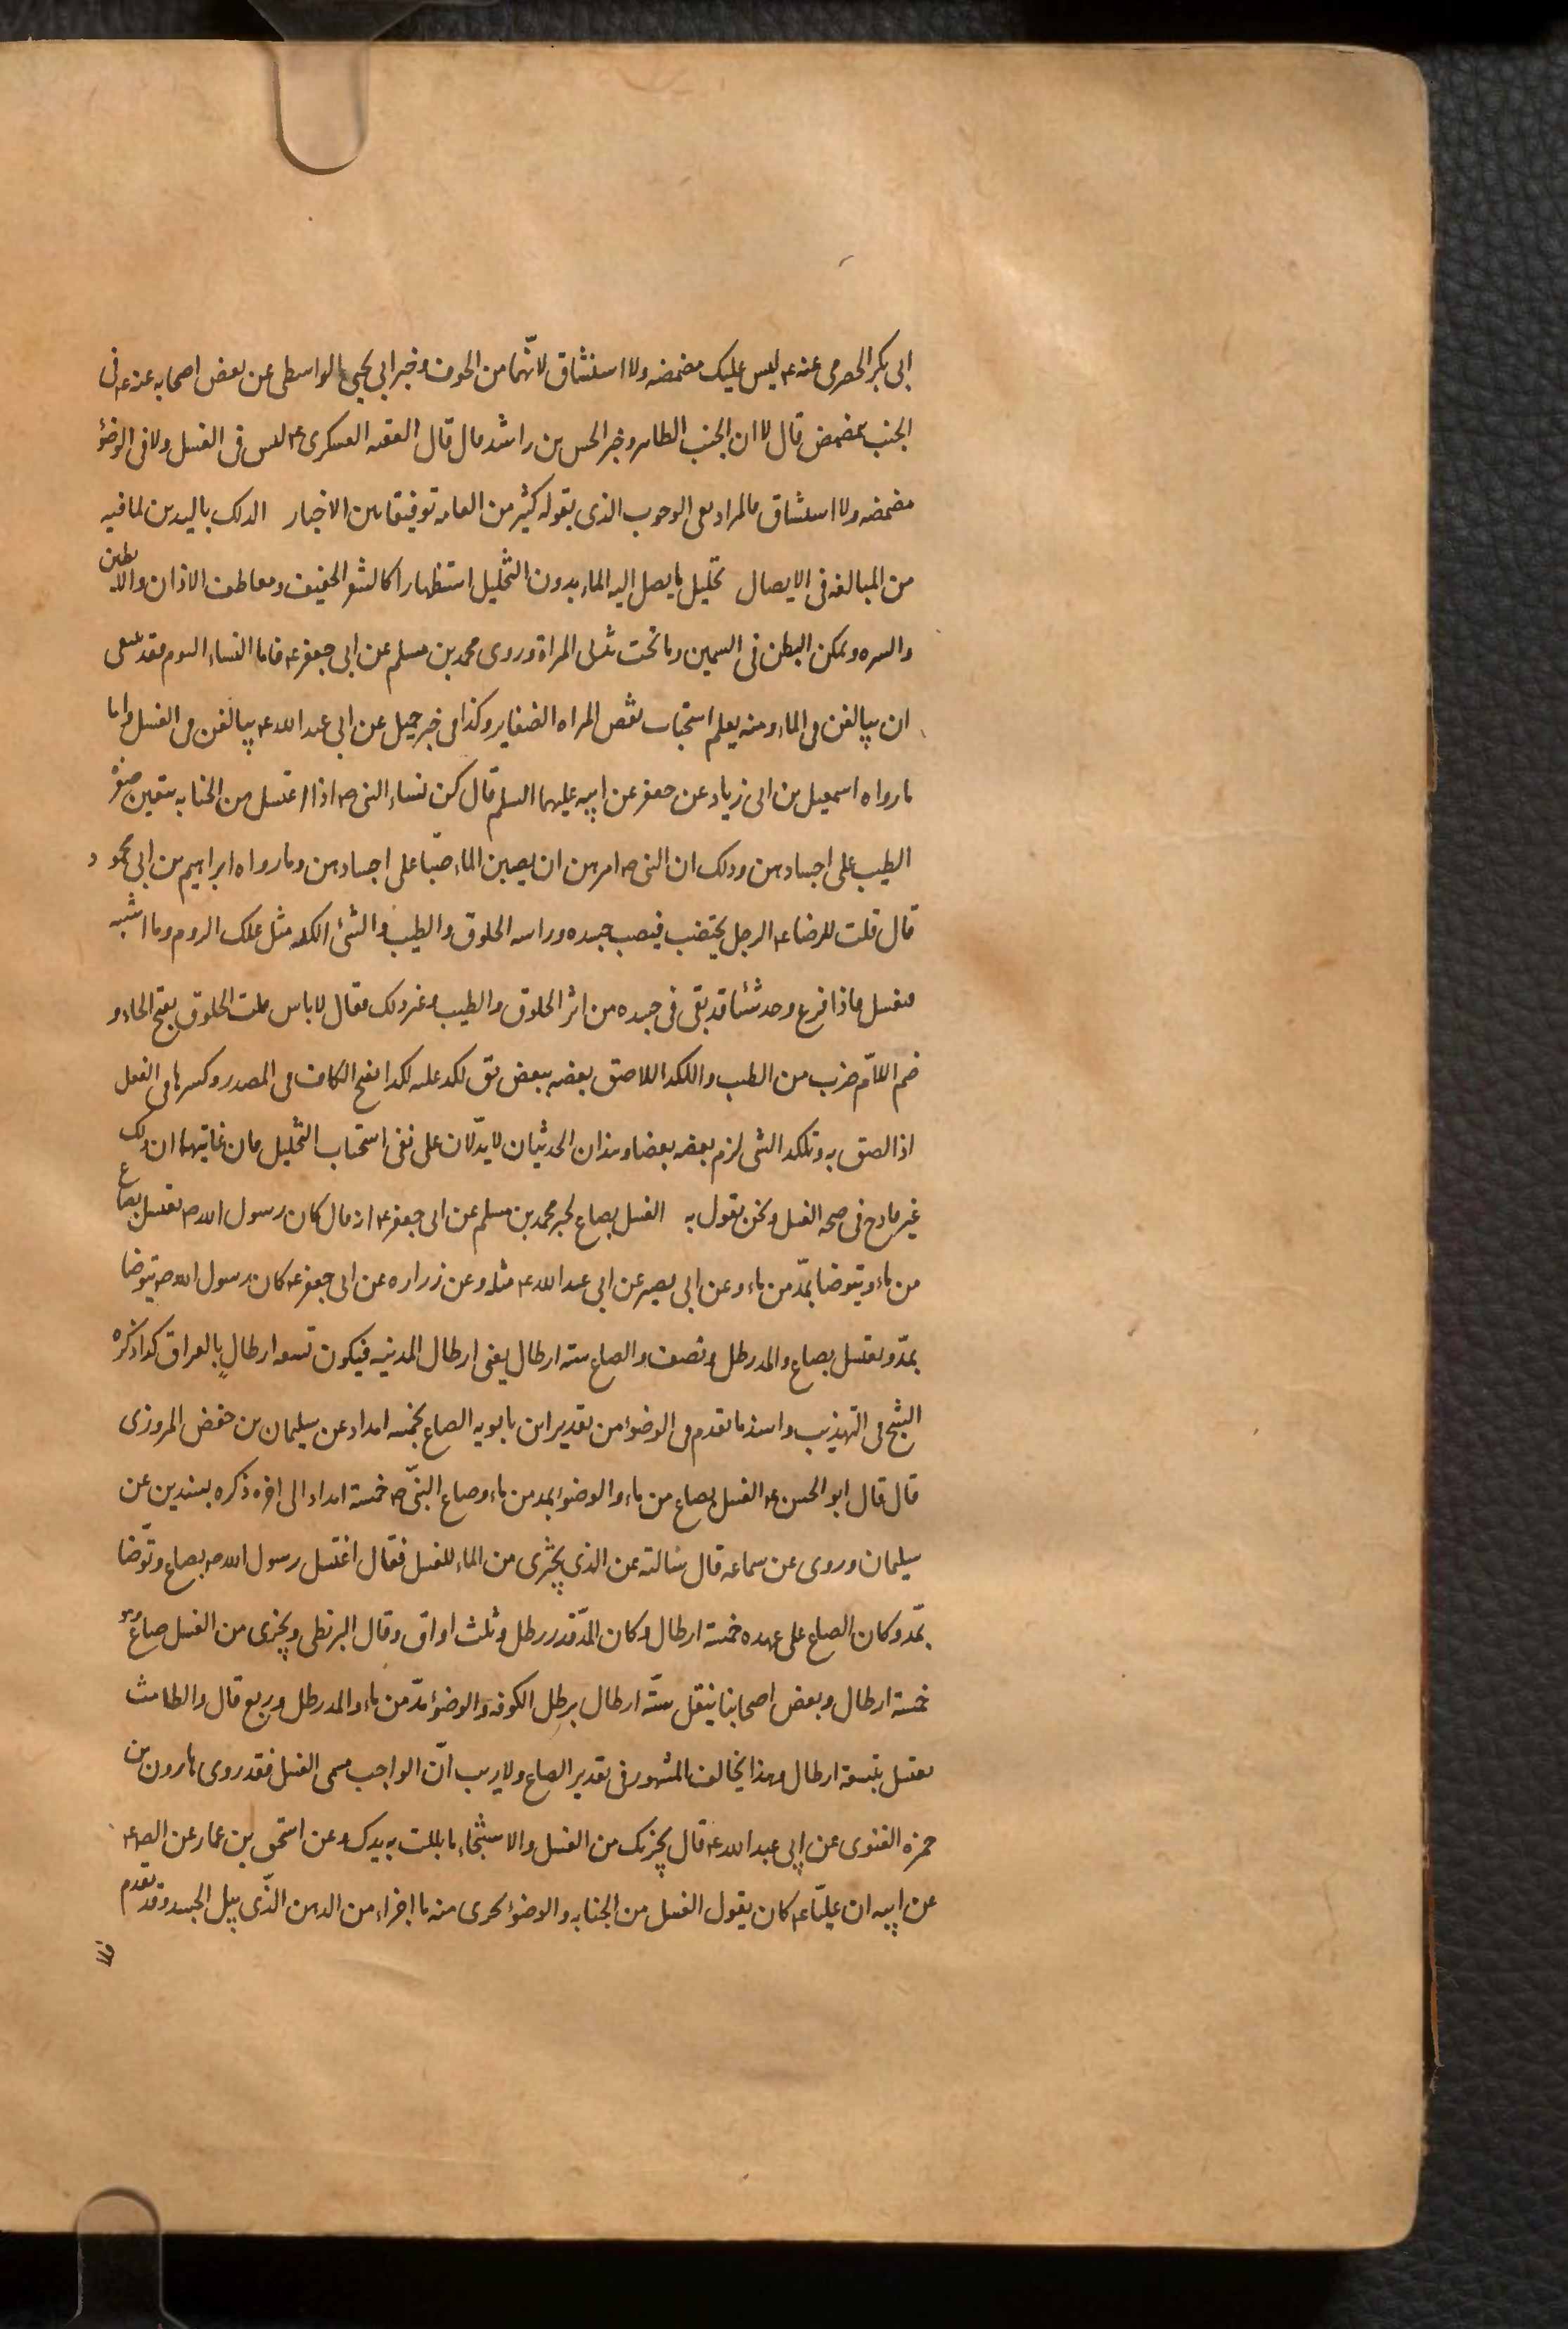 ابى بكر الحضرمى عنه ع ليس عليك مضمضه ولا استنشاق لانّهما من الجوف وخبر ابى يحيى الواسطى عن بعض اصحابه عنه ع فى
الجنب يتمضمض قال لا ان الجنب الظاهر وخبر الحسن بن راشد قال قال الفقيه العسكرى ع ليس فى الغسل ولا فى الوضؤ
مضمضه ولا استنشاق فالمراد نفى الوجوب الذى يقوله كثير من العامه توفيقا بين الاخبار الدلك باليدين لما فيه
من المبالغه فى الايصال تخليل ما يصل اليه الماء بدون التخليل استظهارا كالشعر الخفيف ومعاطف الاذان والابطين
والسره وعكن البطن فى السمين وما تحت ثدى المراة وروى محمد بن مسلم عن ابى جعفر ع فاما النساء اليوم فقد ينبغى
ان يبالغن فى الماء ومنه يعلم استحباب نقض المراه الضفاير وكذا فى خبر جميل عن ابى عبد الله ع يبالغن فى الغسل واما
ما رواه اسمعيل بن ابى زياد عن جعفر عن ابيه عليهما السلم قال كن نساء النبى ص اذا اغتسلن من الجنابه يبقين صفرة
الطيب على اجسادهن وذلك ان النبى ص امرهن ان يصببن الماء صبّا على اجسادهن وما رواه ابراهيم بن ابى محمود
قال قلت للرضا ع الرجل يجتنب فيصيب جسده وراسه الخلوق والطيب والشئ اللكد مثل علك الروم وما اشبه
فيغتسل فاذا فرغ وجد شئا قد بقى فى جسده من اثر الخلوق والطيب وغير ذلك فقال لا باس قلت الخلوق بفتح الخاء و
ضم اللّام ضرب من الطيب واللكد اللاصق بعضه ببعض يق لكد عليه لكدا بفتح الكاف فى المصدر وكسرها فى الفعل
اذا لصق به وتلكد الشى لزم بعضه بعضا وهذان الحديثان لا يدّلان على نفى استحباب التخليل فان غايتهما ان ذلك
غير قادح فى صحه الغسل ونحن نقول به الغسل بصاع لخبر محمد بن مسلم عن ابى جعفر ع انه قال كان رسول الله ص يغتسل بصاع
من ماء ويتوضا بمدّ من ماء وعن ابى بصير عن ابى عبد الله ع مثله وعن زراره عن ابى جعفر ع كان رسول الله ص يتوضا
بمدّ ويغتسل بصاع والمد رطل ونصف والصاع سته ارطال يعنى ارطال المدينه فيكون تسعه ارطالٍ بالعراق كذا ذكره
الشيخ فى التهذيب واسند ما تقدم فى الوضؤ من تقدير ابن بابويه الصاع بخمسه امداد عن سليمان بن حفص المروزى
قال قال ابو الحسن ع الغسل بصاع من ماء والوضوء بمد من ماء وصاع النبىّ ص خمسة امداد الى اخره ذكره بسندين عن
سليمان وروى عن سماعه قال سالته عن الذى يجزى من الماء للغسل فقال اغتسل رسول الله ص بصاع وتوّضا
بمّد وكان الصاع على عهده خمسة ارطال وكان المدّ قدر رطل وثلث اواق وقال البزنطى ويجزى من الغسل صاع وهو
خمسة ارطال وبعض اصحابنا ينقل ستّه ارطال برطل الكوفه والوضؤ مدّ من ماء والمد رطل وربع قال والطامث
تغتسل بتسعة ارطال وهذا يخالف المشهور فى تقدير الصاع ولا ريب انّ الواجب مسمى الغسل فقد روى هارون بن
حمزه الغنوى عن ابى عبد الله ع قال يجزيك من الغسل والاستنجاء ما بللت به يدك وعن اسحق بن عمار عن الصه ع
عن ابيه ان عليّا ع كان يقول الغسل من الجنابه والوضؤ يجزى منه ما اجزاء من الدهن الذّى يبل الجسد وقد تقدم